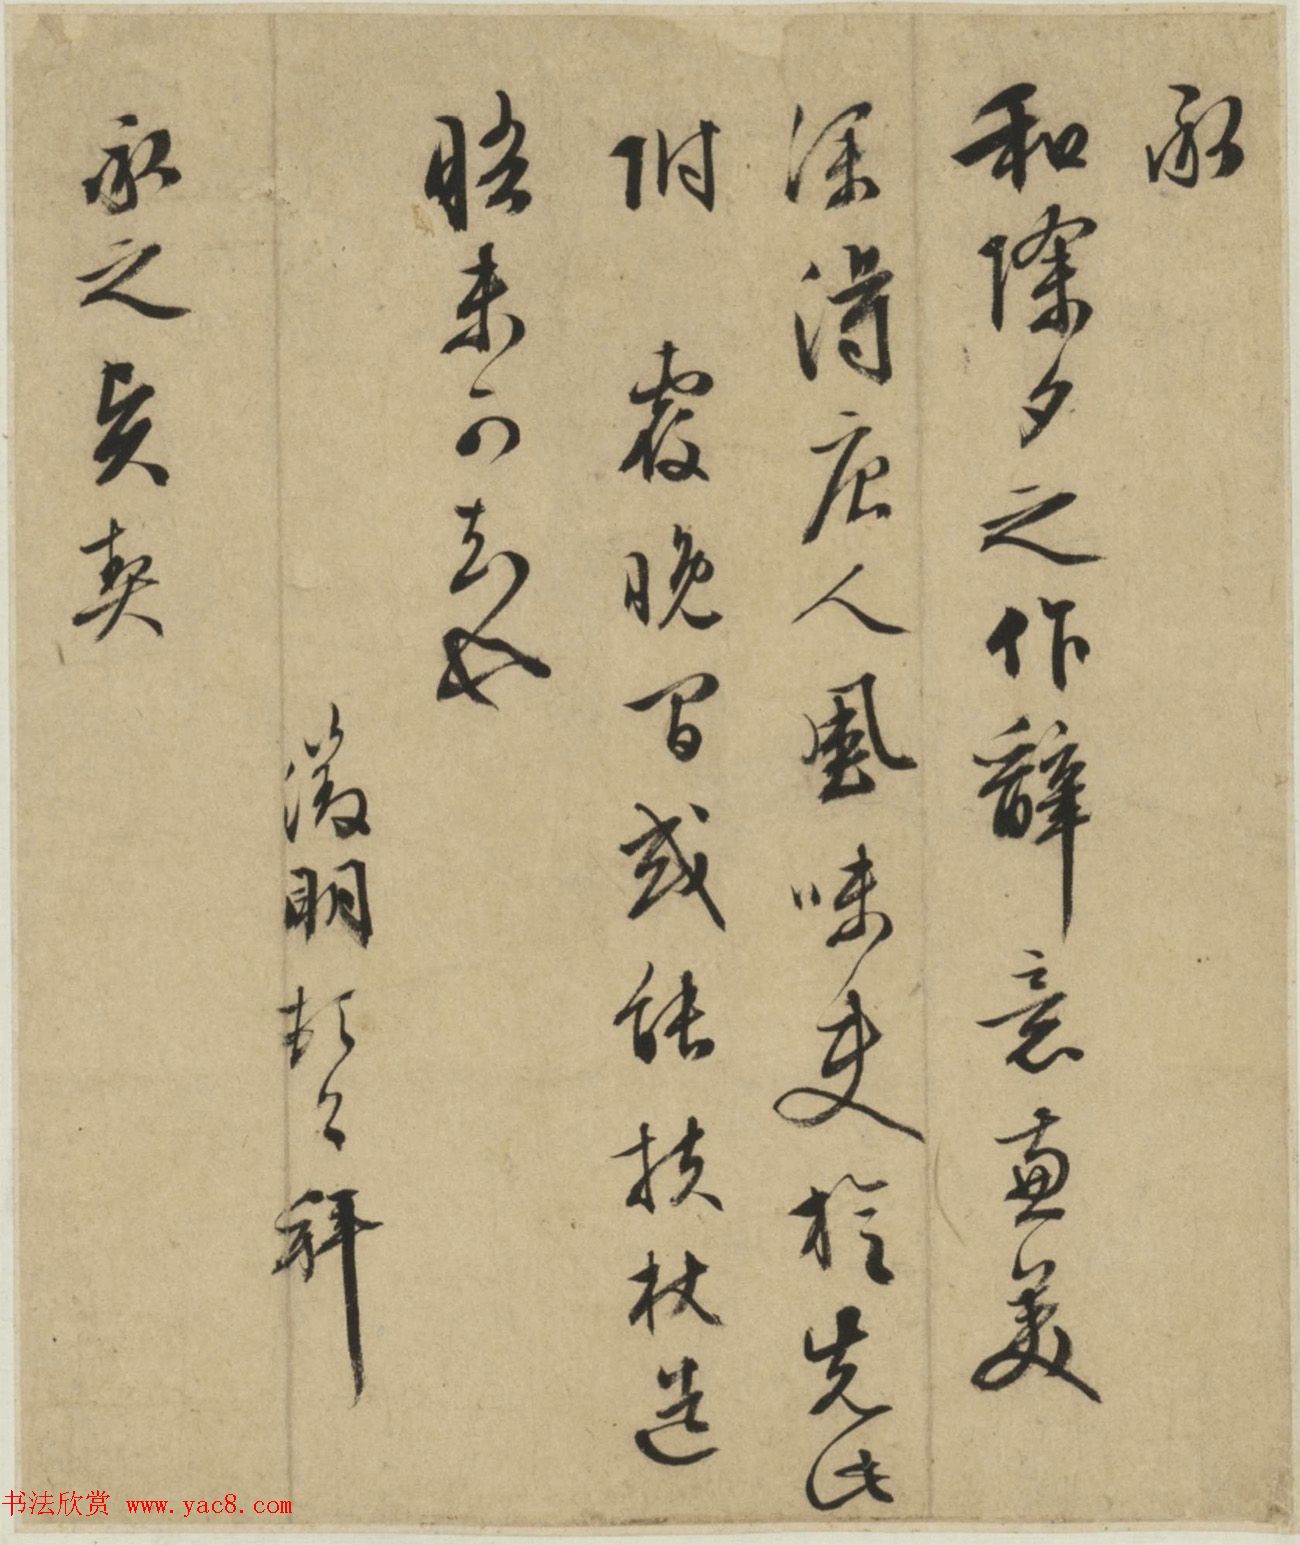 承
和除夕之作辭意兼美
深得唐人風味使旋先此
附 覆晚間或能扶杖造
晤未可知也
徵明頓首拜
永之賢契
书法欣赏 www.yac8.com